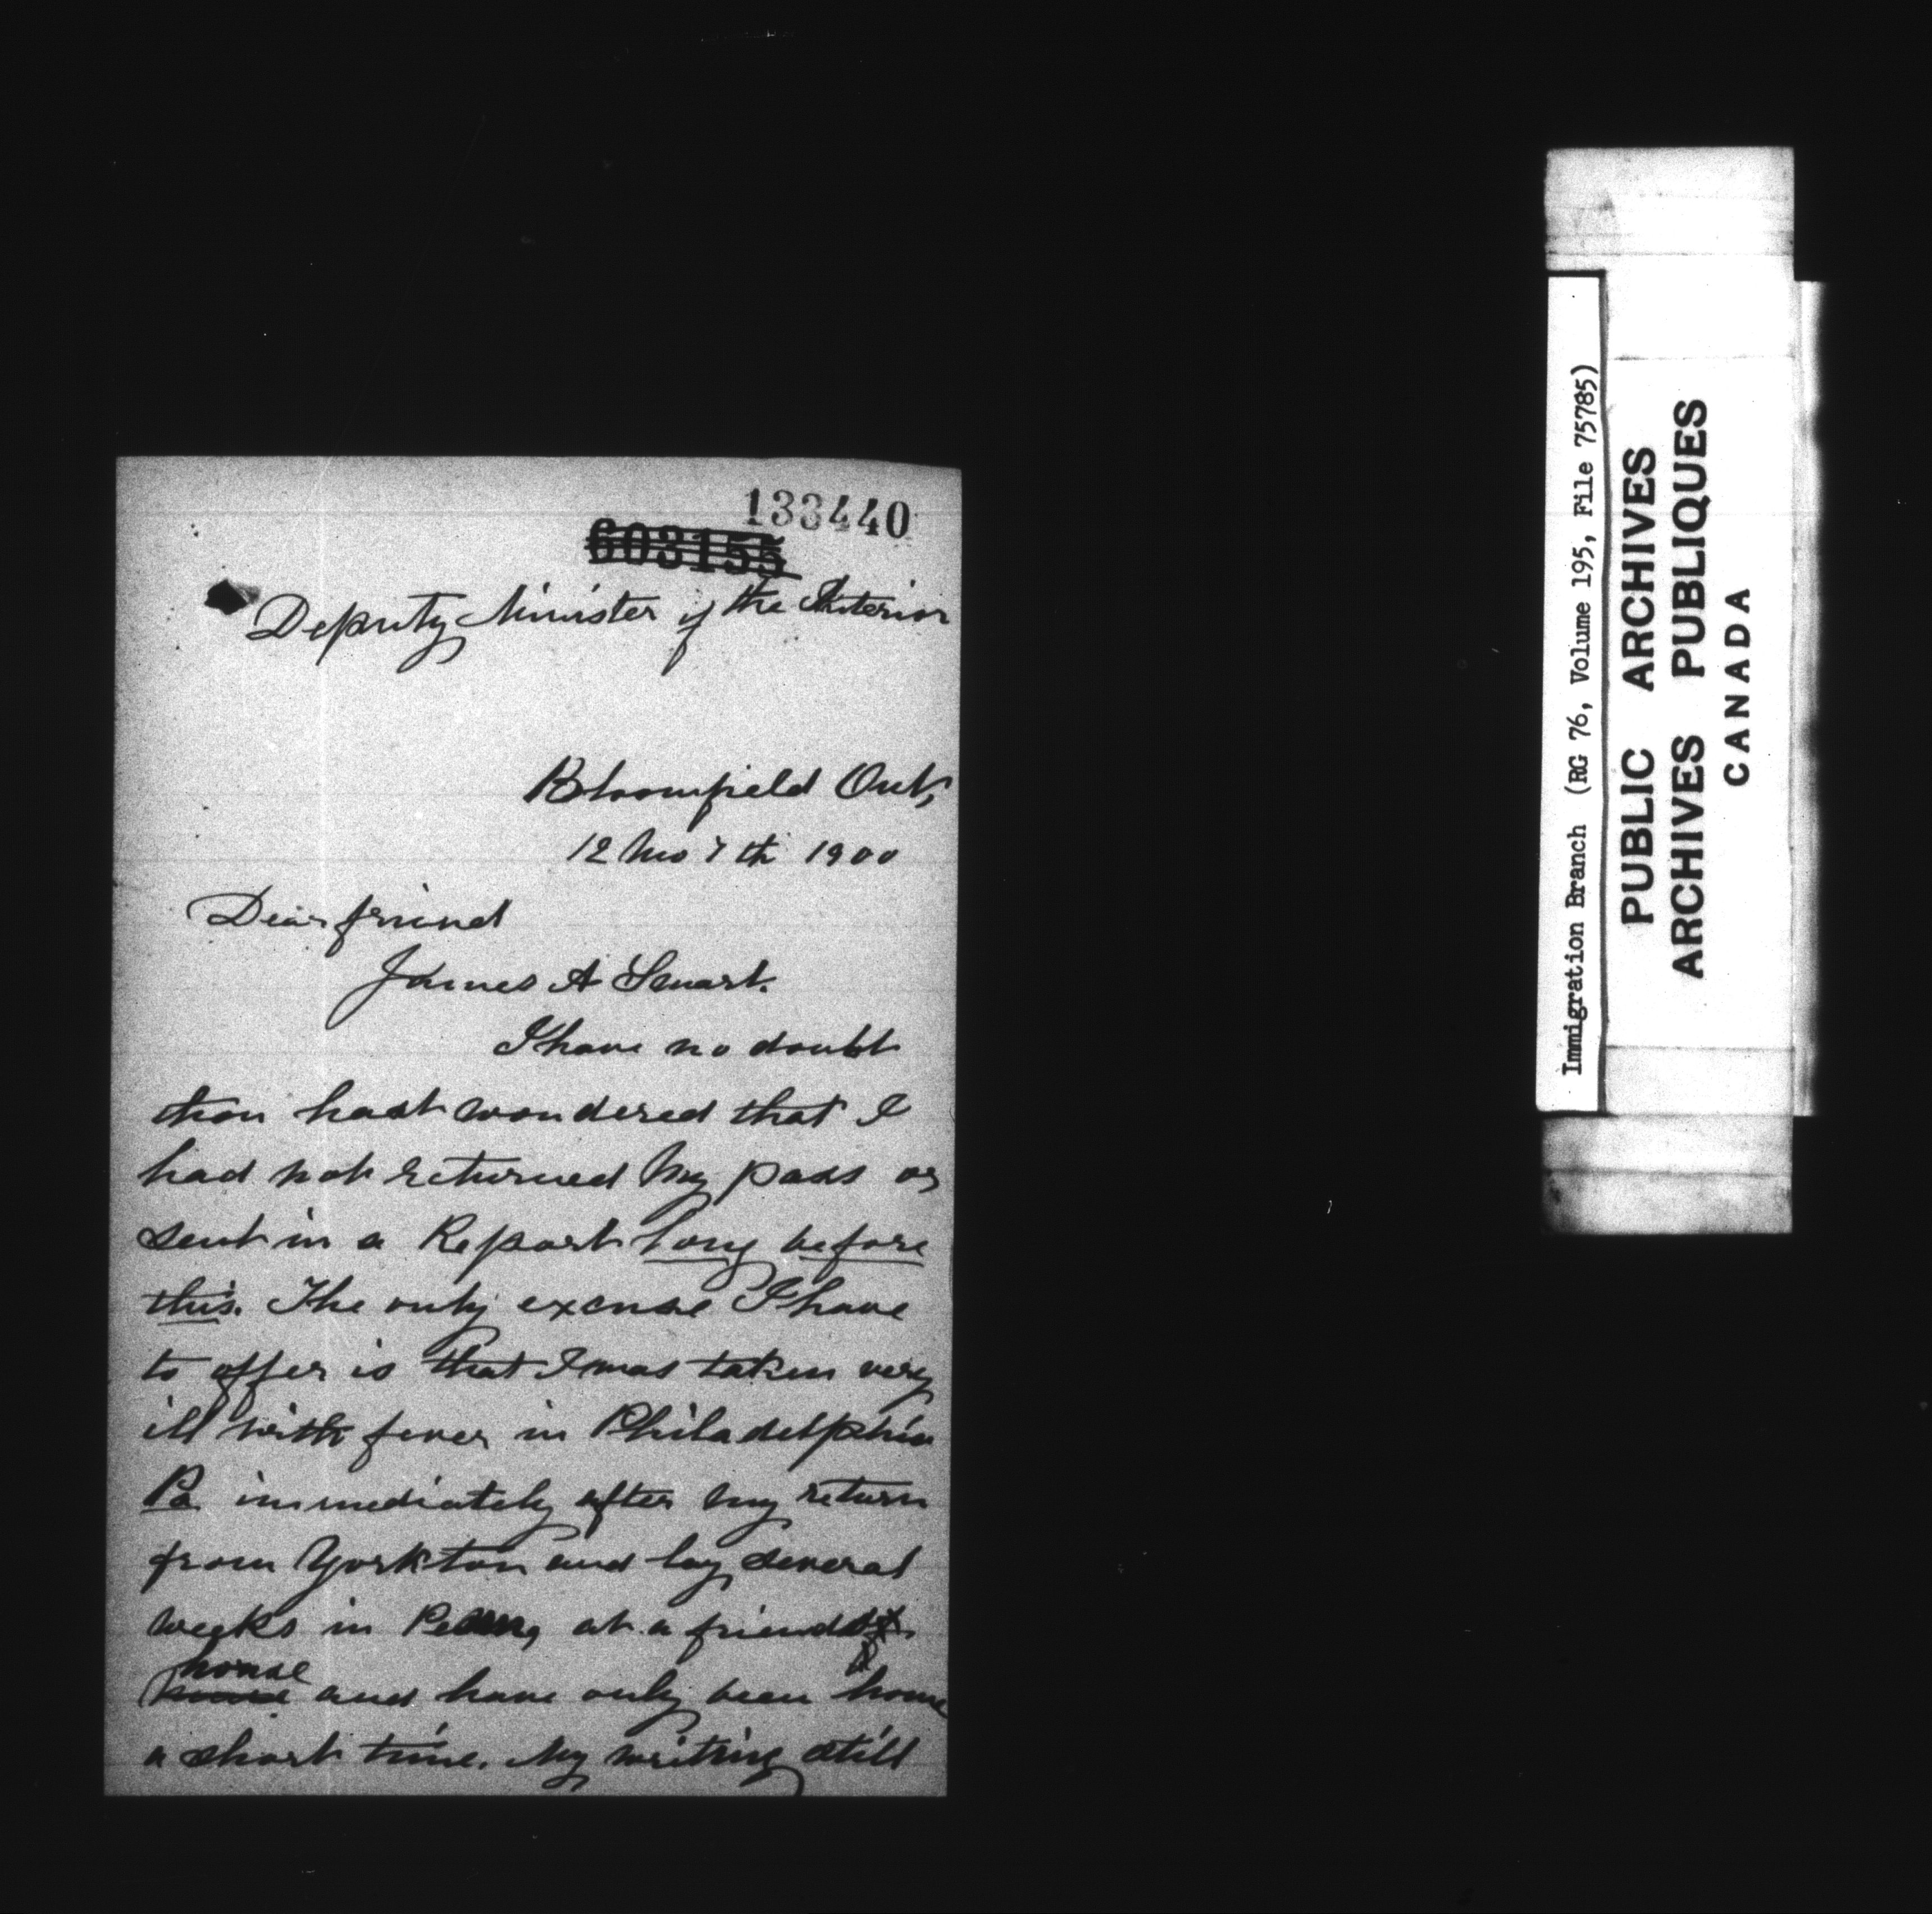 133440
603155
Deputy Minister of the Interior
Bloomfield Ont,
12 Mo 7th 1900
Dear friend
James A Smart.
I have no doubt
thou hast wondered that I
had not returned My pass or
sent in a Report long before
this. The only excuse I have
to offer is that I was taken very
ill with fever in Philadelphia
Pa immediately after my return
from Yorkton and lay several
weeks in at a friends
house
and have only been home
a short time. My writing still
Immigration Branch (RG 76, Volume 195, File 75785)
PUBLIC ARCHIVES
ARCHIVES PUBLIQUES
CANADA